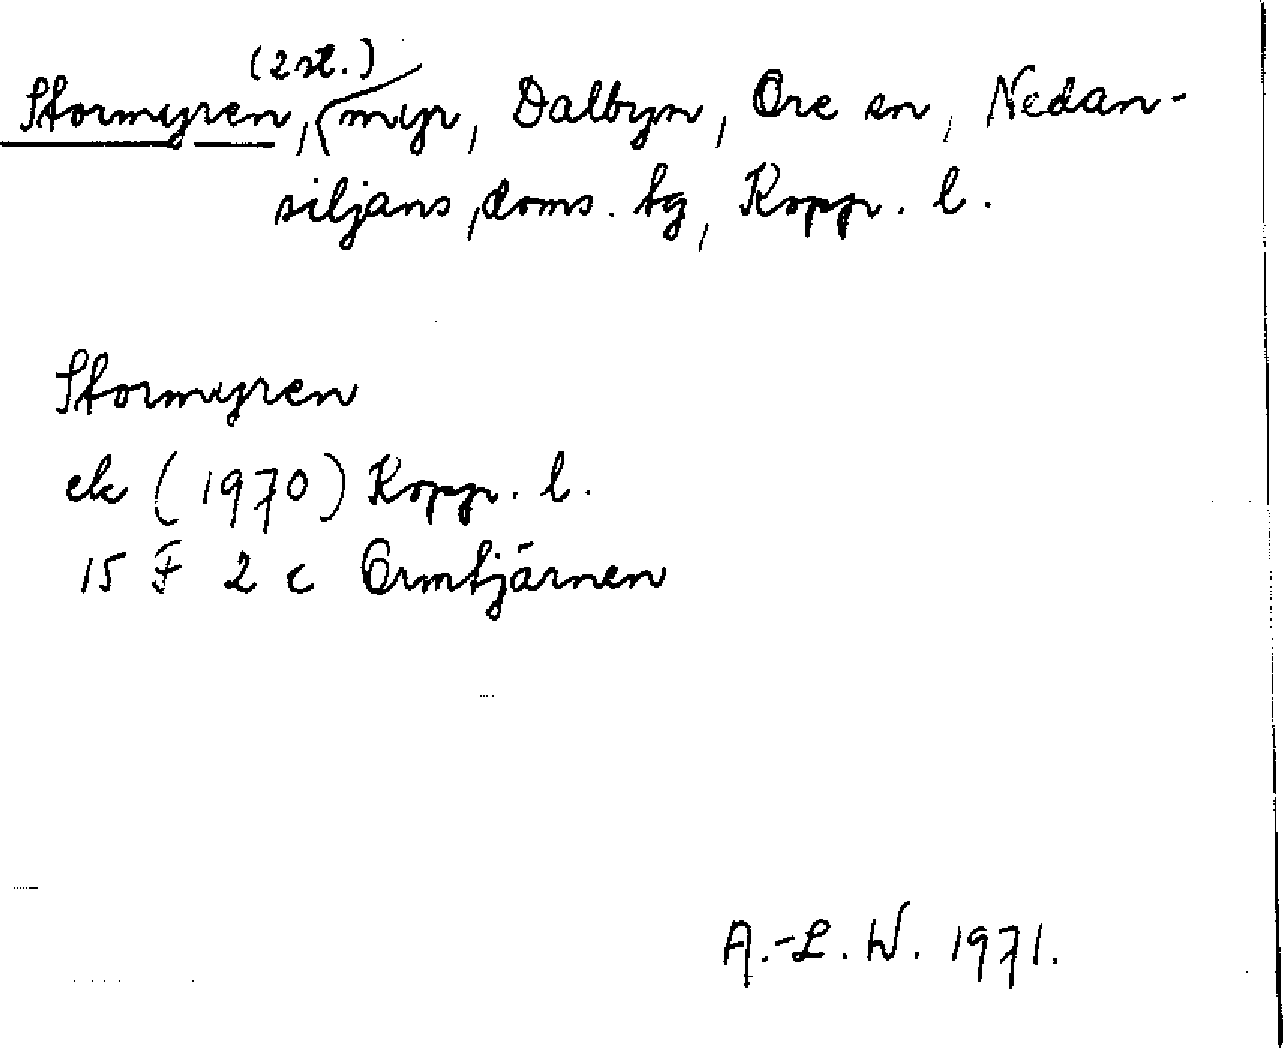 Stormyren, (2 st.) myr, Dalbyn, Ore sn, Nedan-
siljans doms. tg, Kopp. l.
Stormyren
ek (1970) Kopp. l.
15 F 2 c Ormtjärnen
A.-L. W. 1971.